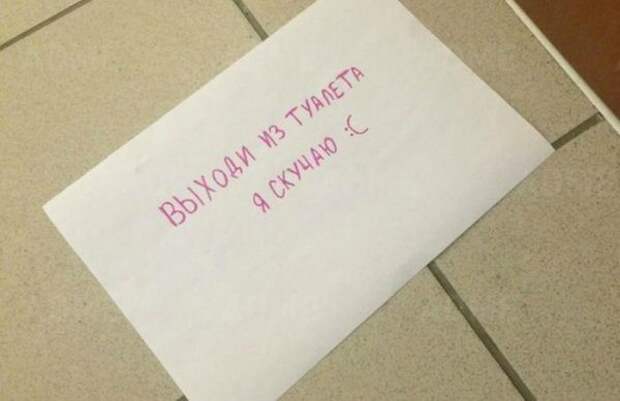 ВЫХОДИ ИЗ ТУАЛЕТА
Я СКУЧАЮ :(